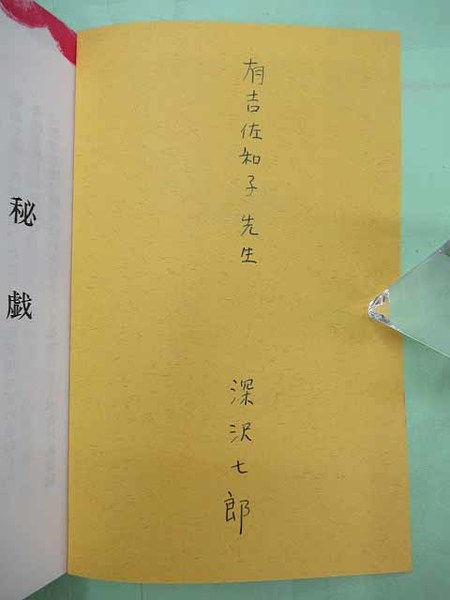 有吉佐和子先生
深沢七郎
秘戯